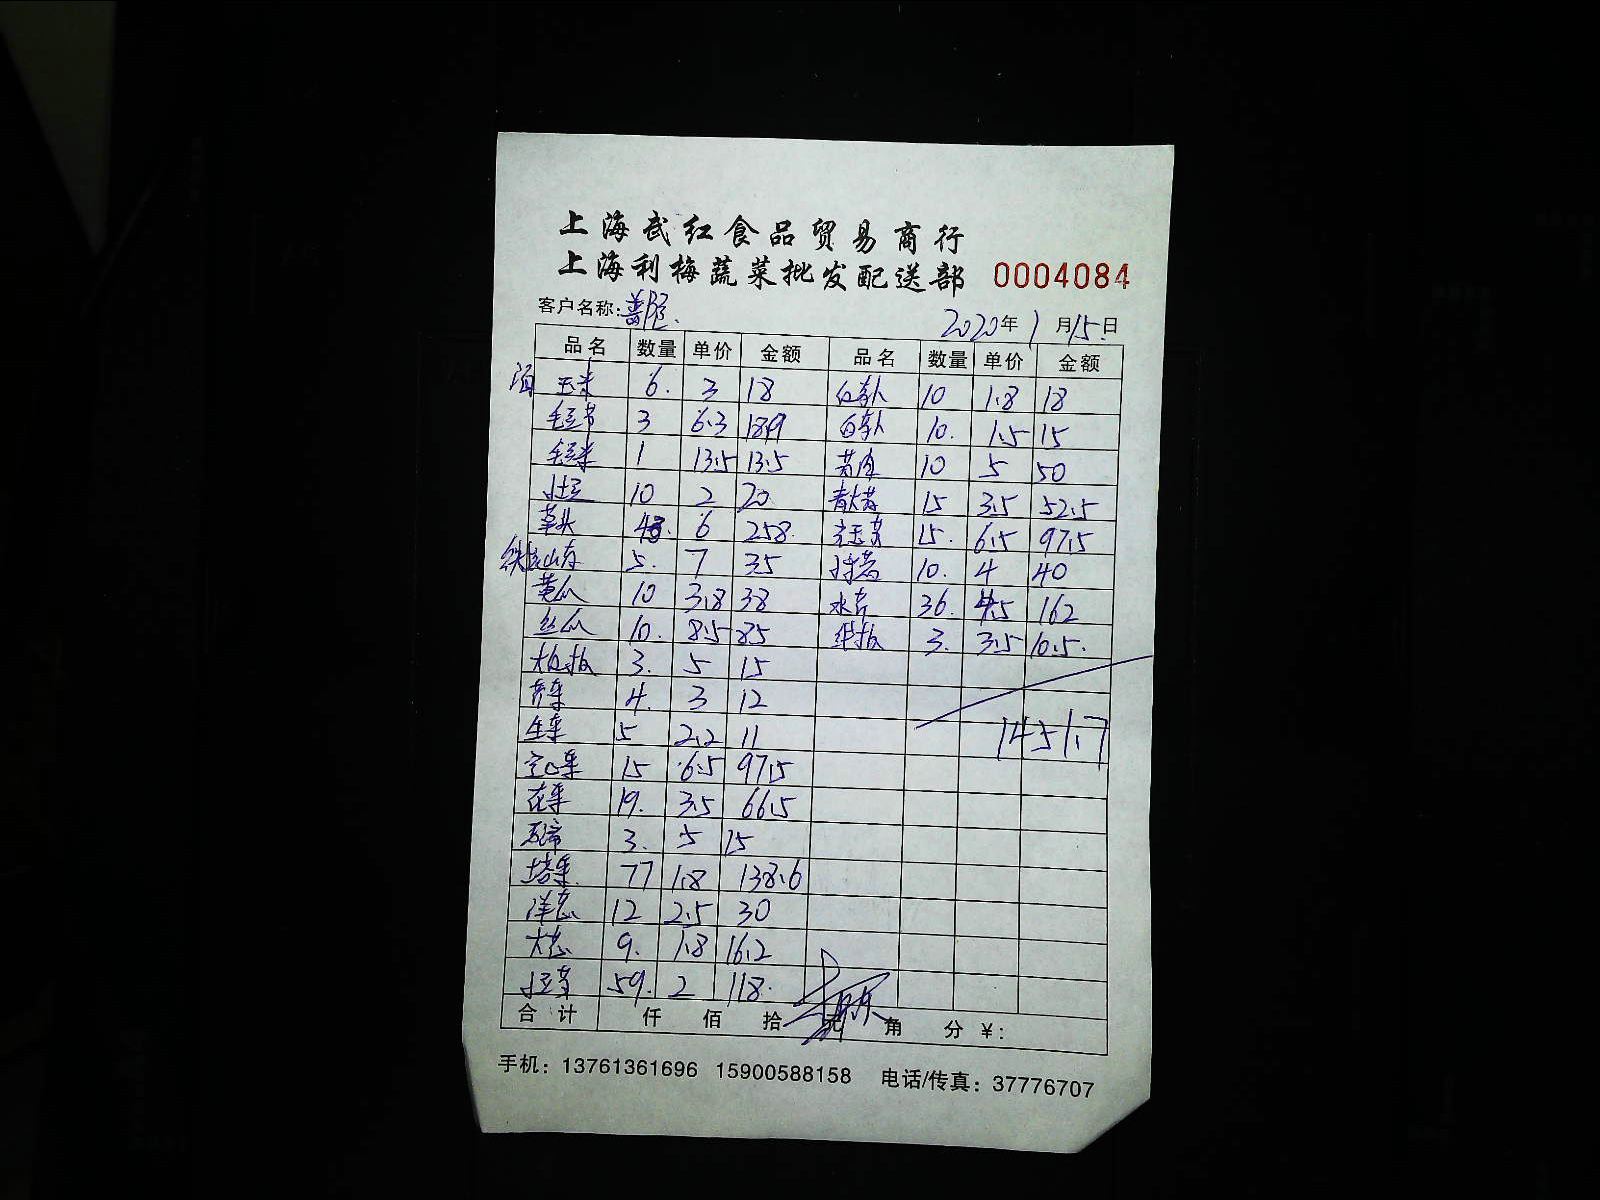 上海武红食品贸易商行
上海利梅蔬菜批发配送部 0004084
客户名称: 2020年1月15日
品名 数量 单价 金额 品名 数量 单价 金额
玉米 6. 3 18 白萝卜 10 1.8 18
毛豆节 3 6.3 18.9 白萝卜 10. 1.5 15
毛豆米 1 13.5 13.5 10 5 50
土豆 10 2 20 15 3.5 52.5
草头 43. 6 258. 15. 6.5 97.5
铁棍山药 5. 7 35 10. 4 40
黄瓜 10 3.8 38 水芹 36. 4.5 162
丝瓜 10. 8.5 85 3. 3.5 10.5.
3. 5 15
芹菜 4. 3 12
生菜 5 2.2 11 1451.7
空心菜 15 6.5 97.5
花菜 19. 3.5 66.5
3. 5 15
塔菜 77 1.8 138.6
洋葱 12 2.5 30
大葱 9. 1.8 16.2
59. 2 118.
合计 仟 佰 拾 元 角 分 ¥:
手机：13761361696 15900588158 电话/传真：37776707